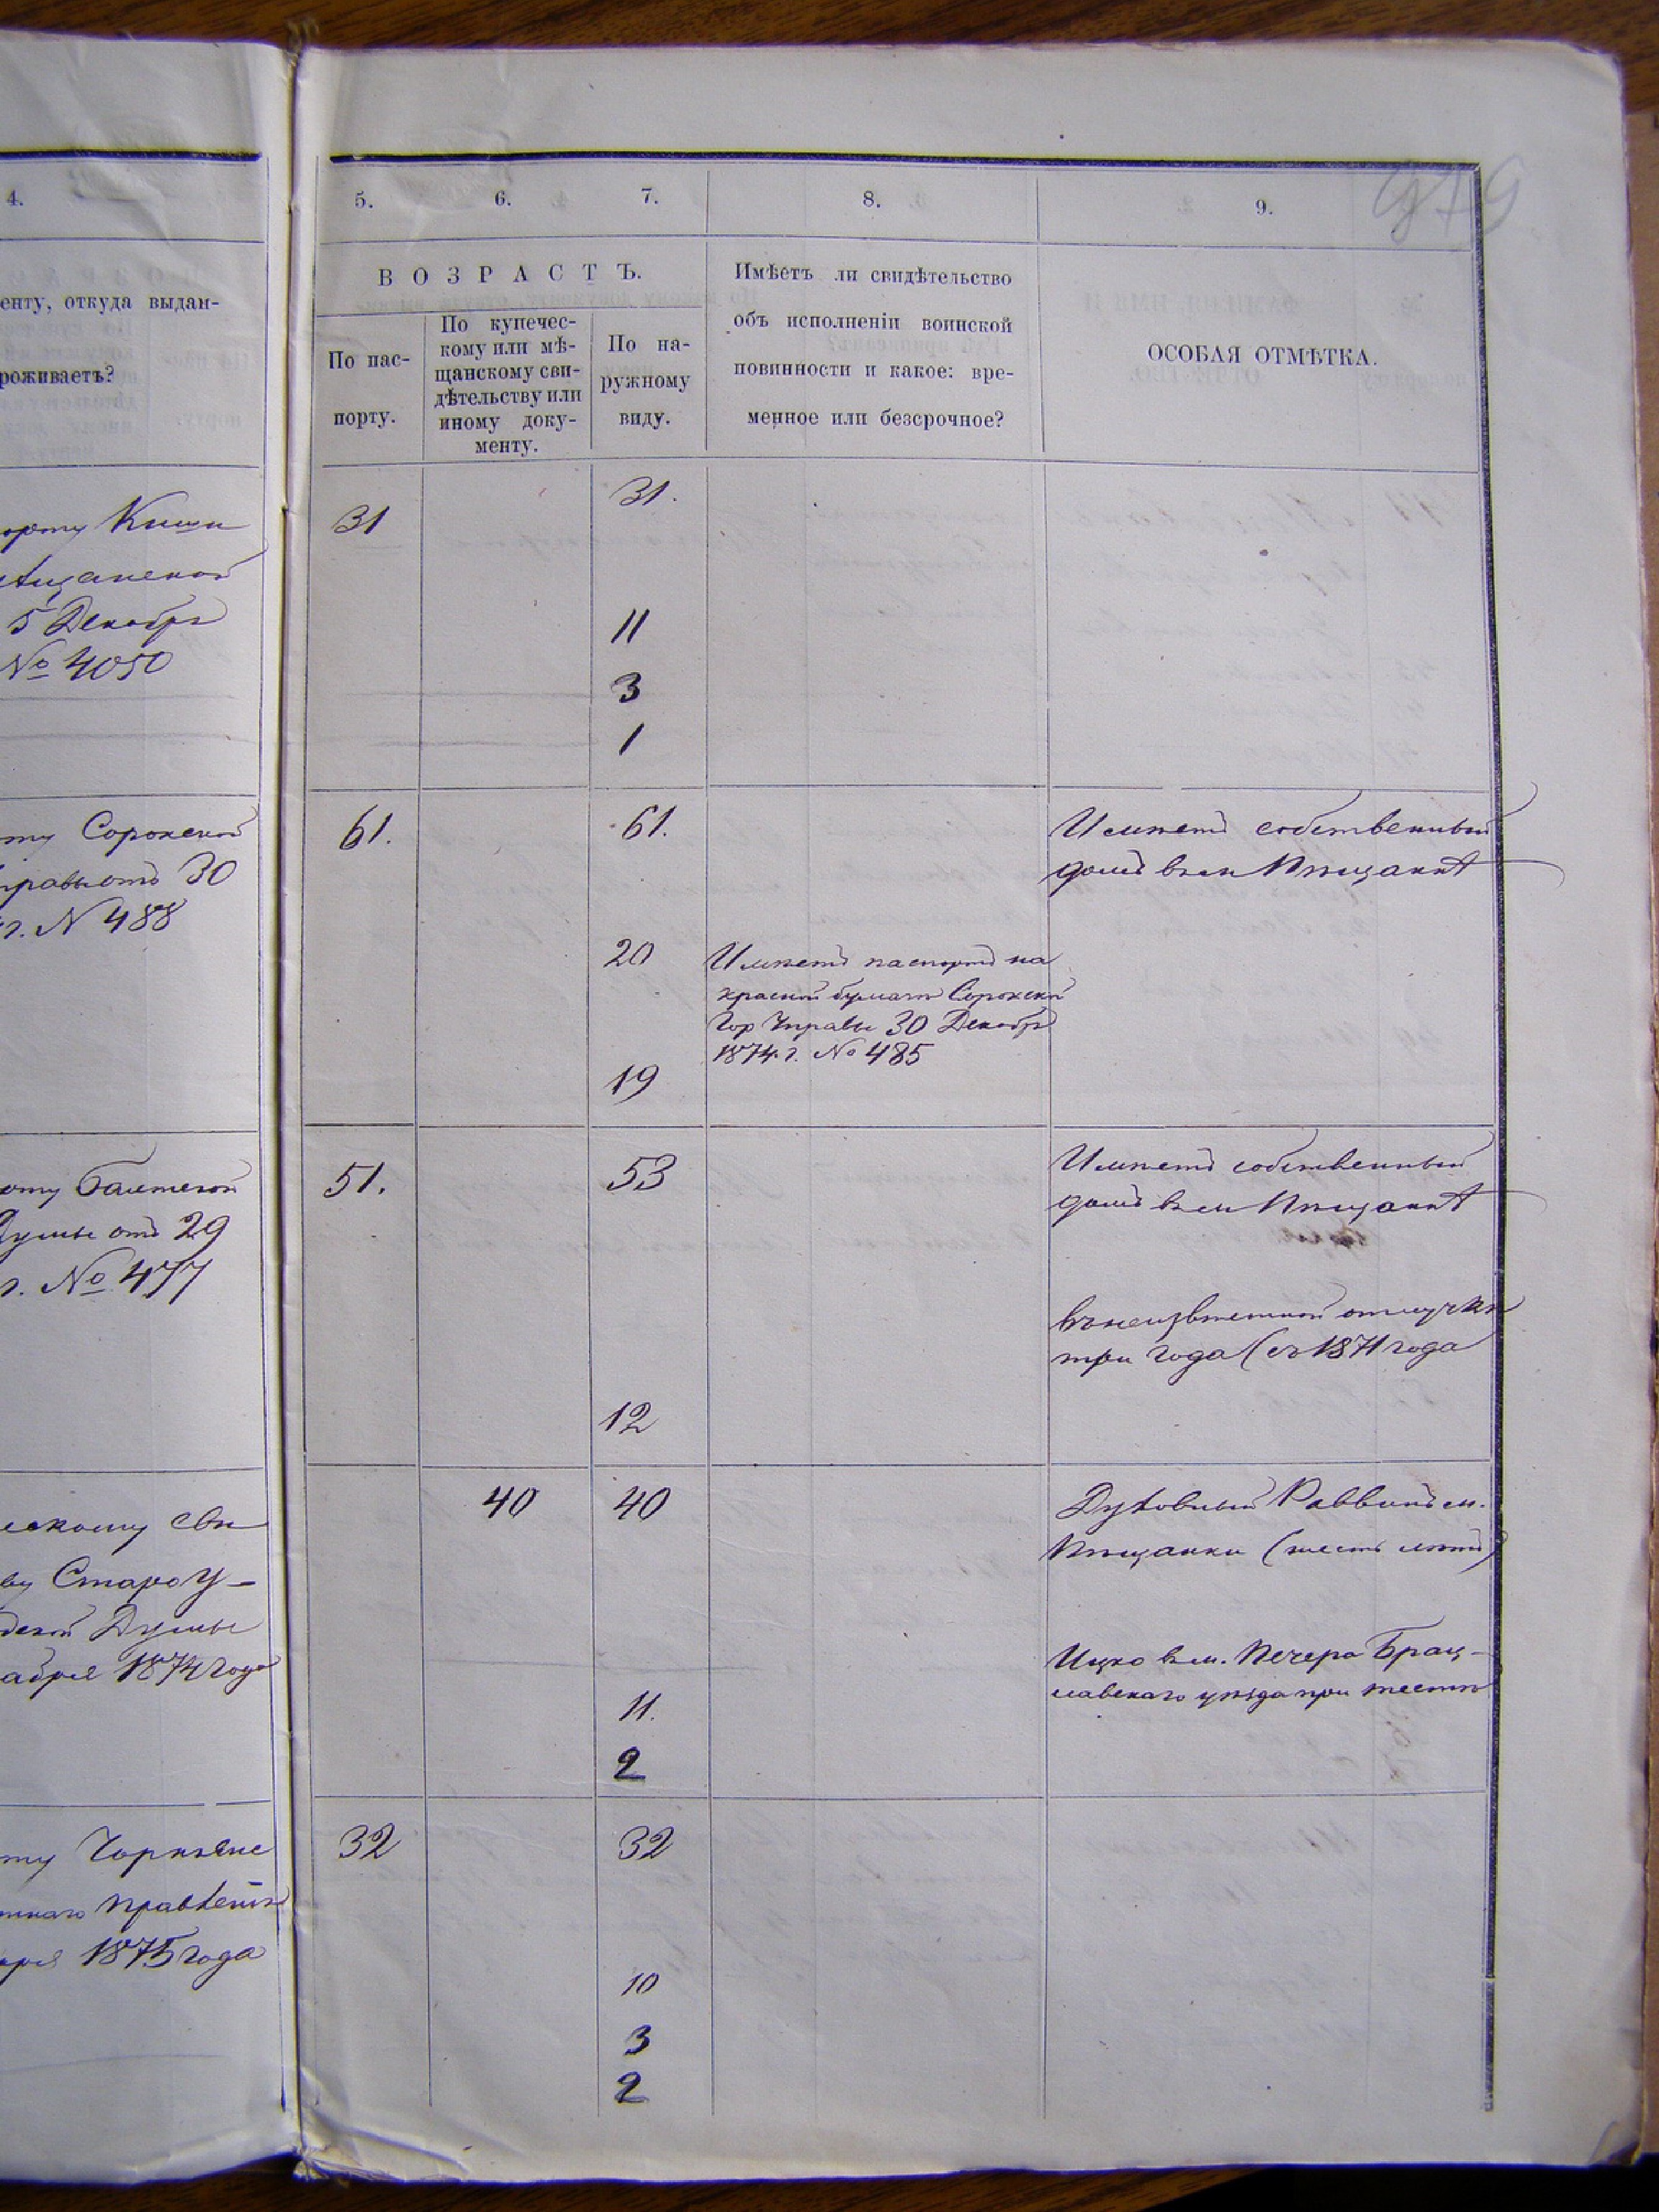 4.
енту, откуда выдан-
роживаетъ?
орту Киши
5 Декабря
№ 4050
ту Сорокской
правы отъ 30
г. N 488
орту Балтской
Думы отъ 29
г. № 477
ескому сви
ву Староу-
дской Думы
абря 1874 года
ту
1875 года
5.
6.
7.
8.
9.
979
ВОЗРАСТЪ.
По пас-
порту.
По купечес-
кому или мѣ-
щанскому сви-
дѣтельству или
иному доку-
менту.
По на-
ружному
виду.
Имѣетъ ли свидѣтельство
объ исполненіи воинской
повинности и какое: вре-
менное или безсрочное?
ОСОБАЯ ОТМѢТКА.
31
31.
11
3
1
61.
61.
Имѣетъ собственный
домъ въ м Пѣщанкѣ
20
Имѣетъ паспортъ на
красной бумагѣ Сорокской
Гор Управы 30 Декабр
1874 г. № 485
19
51.
53
Имѣетъ собственный
домъ въ м Пѣщанкѣ
въ неизвѣстной отлучкѣ
три года (съ 1871 года
12
40
40
Духовный Раввинъ м.
Пѣщанки (шесть лѣтъ)
Ицко въ м. Печера Брац-
лавскаго уѣзда при тестѣ
11.
2
32
32
10
3
2